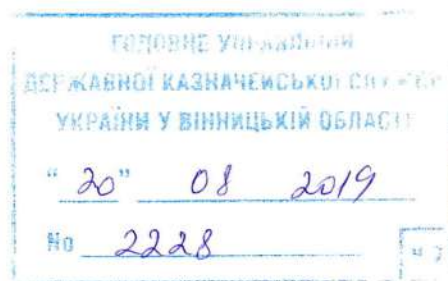 ГОЛОВНЕ УПРАВЛІННЯ
ДЕРЖАВНОЇ КАЗНАЧЕЙСЬКОЇ СЛУЖБИ
УКРАЇНИ У ВІННИЦЬКІЙ ОБЛАСТІ
"20" 08 2019
№ 2228